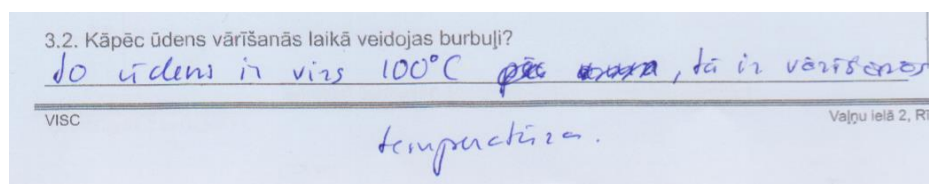 3.2. Kāpēc ūdens vārīšanās laikā veidojas burbuļi?
Jo ūdens ir virs 100°C, tā ir vārīšanas
VISC
Vaļņu ielā 2, R
temperatūra.